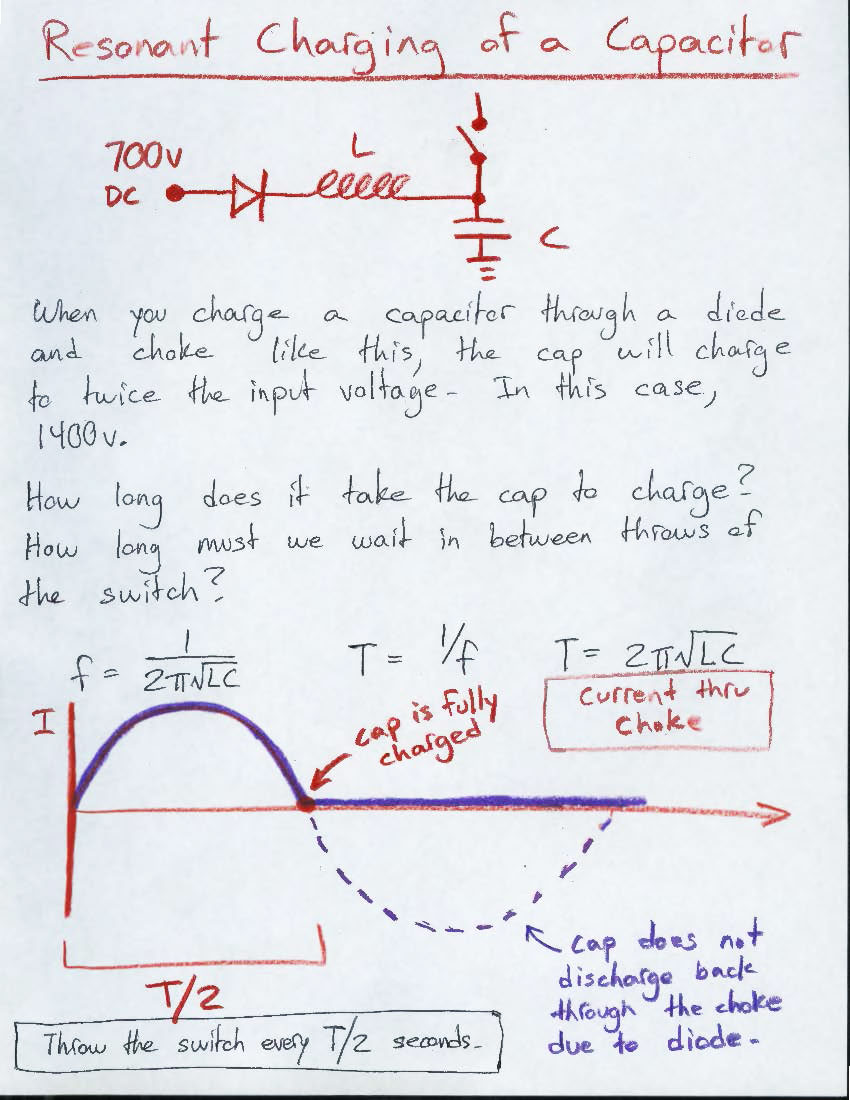 Resonant Charging of a Capacitor
700v
DC
L
C
When you charge a capacitor through a diode
and choke like this, the cap will charge
to twice the input voltage. In this case,
1400v.
How long does it take the cap to charge?
How long must we wait in between throws of
the switch?
f = 1/2π√LC
T = 1/f
T = 2π√LC
Current thru
Choke
I
cap is fully
charged
cap does not
discharge back
through the choke
due to diode.
T/2
Throw the switch every T/2 seconds.